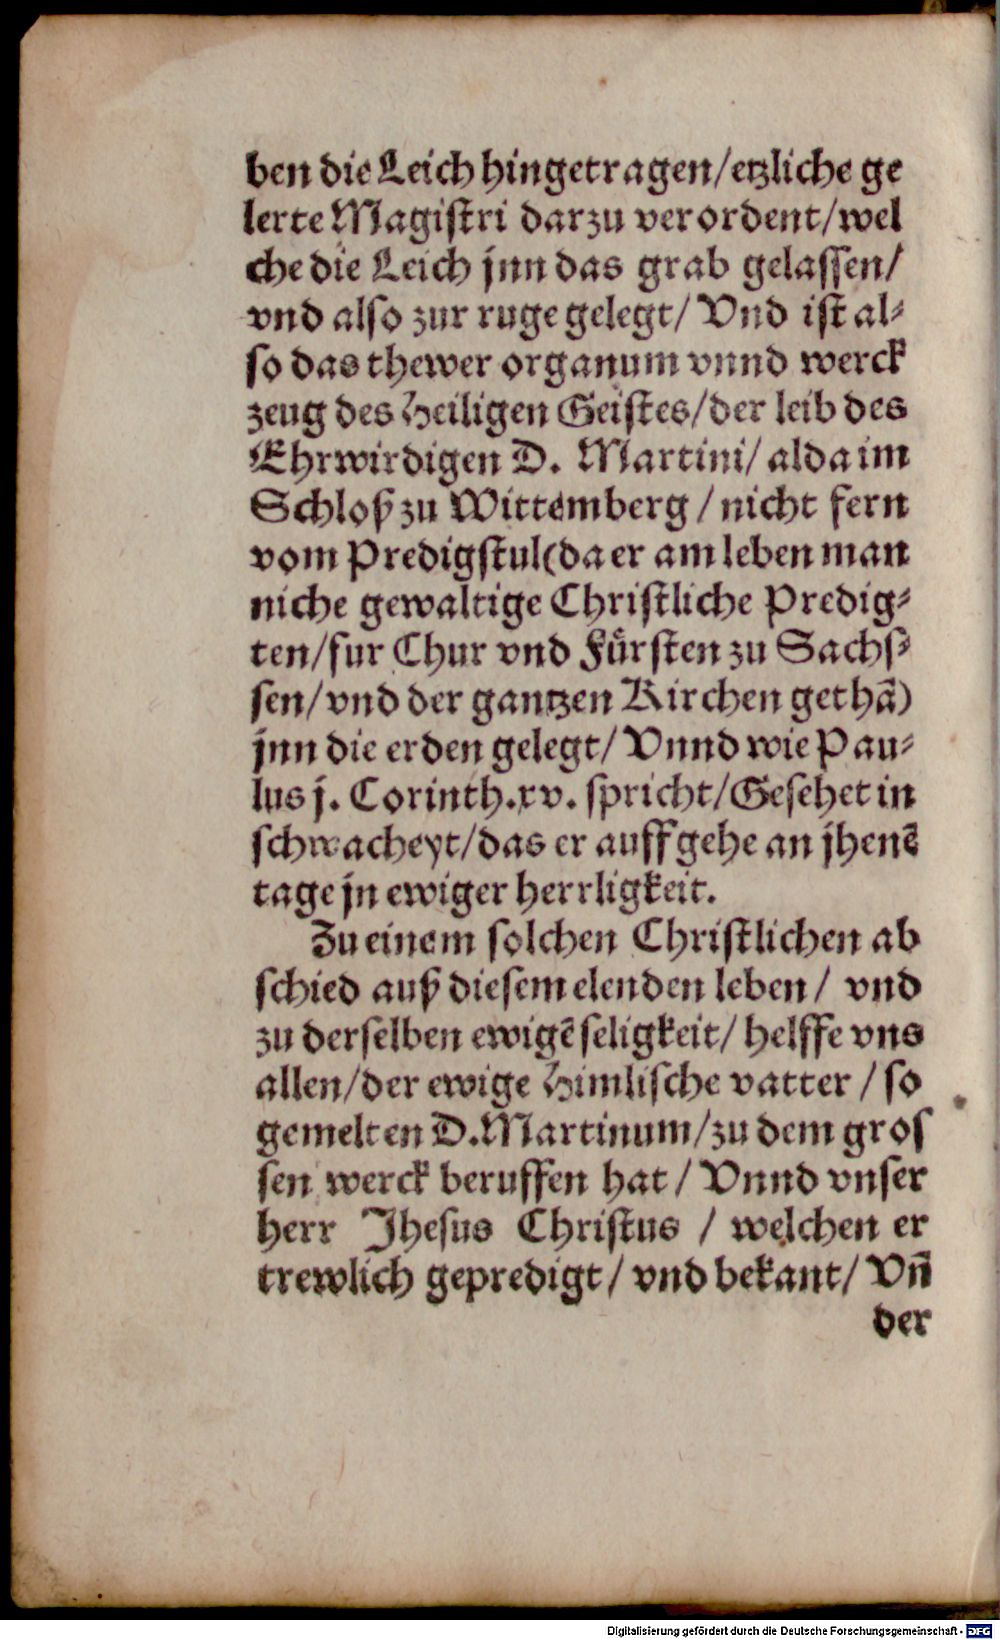 ben die Leich hingetragen/etzliche ge
lerte Magistri darzu verordent/wel
che die Leich jnn das grab gelassen/
vnd also zur ruge gelegt/ Vnd ist al-
so das thewer organum vnnd werck
zeug des Heiligen Geistes/der leib des
Ehrwirdigen D. Martini/ alda im
Schloß zu Wittemberg / nicht fern
vom Predigstul(da er am leben man
niche gewaltige Christliche Predig-
ten/fur Chur vnd Fürsten zu Sachs-
sen/vnd der gantzen Kirchen gethã)
jnn die erden gelegt/ Vnnd wie Pau-
lus j. Corinth.xv. spricht/Gesehet in
schwacheyt/das er auff gehe an jhenẽ
tage jn ewiger herrligkeit.
Zu einem solchen Christlichen ab
schied auß diesem elenden leben/ vnd
zu derselben ewigẽ seligkeit/ helffe vns
allen/der ewige Himlische vatter / so
gemelten D.Martinum/zu dem gros
sen werck beruffen hat / Vnnd vnser
herr Jhesus Christus / welchen er
trewlich gepredigt/ vnd bekant/ Vñ
der
Digitalisierung gefördert durch die Deutsche Forschungsgemeinschaft - DFG